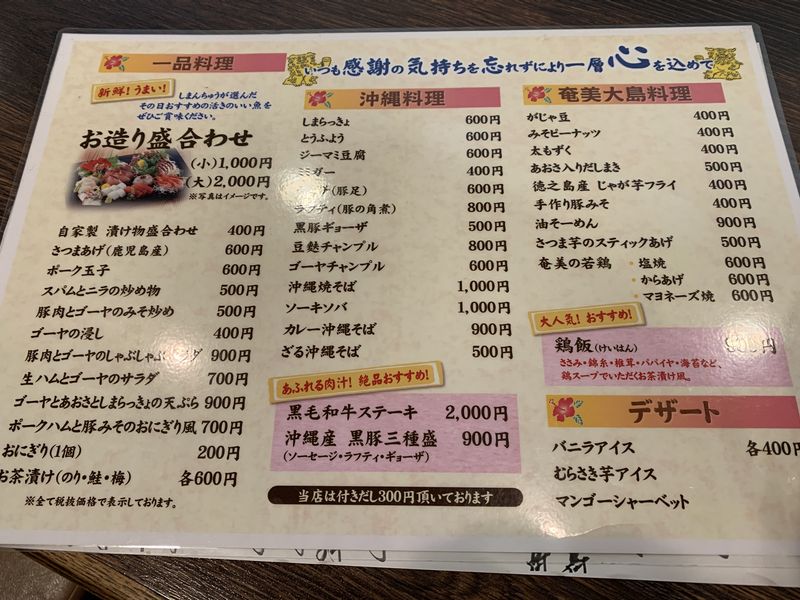 いつも感謝の気持ちを忘れずにより一層心を込めて
一品料理
新鮮!うまい!
しまんちゅうが選んだ
その日おすすめの活きのいい魚を
ぜひご賞味ください。
お造り盛合わせ
(小)1,000円
(大)2,000円
※写真はイメージです。
自家製 漬け物盛合わせ 400円
さつまあげ(鹿児島産) 600円
ポーク玉子 600円
スパムとニラの炒め物 500円
豚肉とゴーヤのみそ炒め 500円
ゴーヤの浸し 400円
豚肉とゴーヤのしゃぶしゃぶ ダ 900円
生ハムとゴーヤのサラダ 700円
ゴーヤとあおさとしまらっきょの天ぷら 900円
ポークハムと豚みそのおにぎり風 700円
おにぎり(1個) 200円
お茶漬け(のり・鮭・梅) 各600円
※全て税抜価格で表示しております。
沖縄料理
しまらっきょ 600円
とうふよう 600円
ジーマミ豆腐 600円
ミミガー 400円
(豚足) 600円
ラフティ(豚の角煮) 800円
黒豚ギョーザ 500円
豆麩チャンプル 800円
ゴーヤチャンプル 600円
沖縄焼そば 1,000円
ソーキソバ 1,000円
カレー沖縄そば 900円
ざる沖縄そば 500円
あふれる肉汁!絶品おすすめ!
黒毛和牛ステーキ 2,000円
沖縄産 黒豚三種盛 900円
(ソーセージ・ラフティ・ギョーザ)
当店は付きだし300円頂いております
奄美大島料理
がじゃ豆 400円
みそピーナッツ 400円
太もずく 400円
あおさ入りだしまき 500円
徳之島産 じゃが芋フライ 400円
手作り豚みそ 400円
油そーめん 900円
さつま芋のスティックあげ 500円
奄美の若鶏 ・塩焼 600円
・からあげ 600円
・マヨネーズ焼 600円
大人気!おすすめ!
鶏飯(けいはん) 900円
ささみ・錦糸・椎茸・パパイヤ・海苔など、
鶏スープでいただくお茶漬け風。
デザート
バニラアイス 各400円
むらさき芋アイス
マンゴーシャーベット